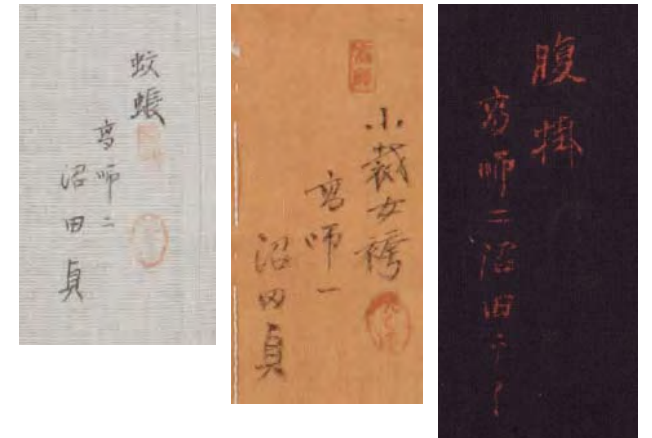 蚊帳
高師二
沼田貞
小裁女袴
高師一
沼田貞
腹掛
高師二沼田